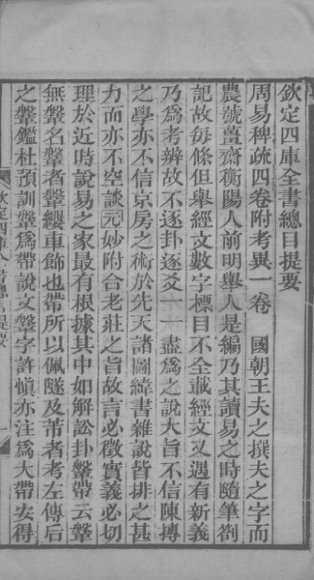 欽定四庫全書總目提要
周易稗疏四卷附考異一卷　國朝王夫之撰夫之字而
農號薑齋衡陽人前明舉人是編乃其讀易之時隨筆劄
記故每條但舉經文數字標目不全載經文又遇有新義
乃爲考辨故不逐卦逐爻一一盡爲之說大旨不信陳摶
之學亦不信京房之術於先天諸圖緯書雜說皆排之甚
力而亦不空談元妙附合老莊之旨故言必徵實義必切
理於近時說易之家最有根據其中如解訟卦鞶帶云鞶
無鞶名鞶者鞶纓車飾也帶所以佩䥙及芾者考左傳后
之鞶鑑杜預訓鞶爲帶說文鞶字許愼亦注爲大帶安得